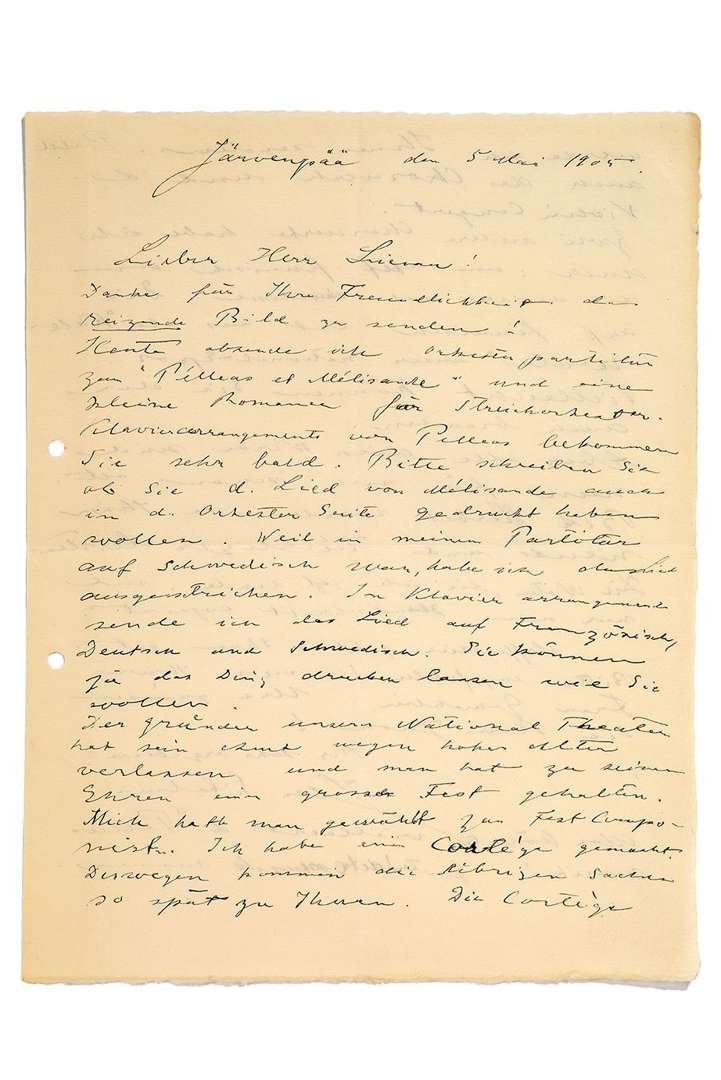 Järvenpää den 5 Mai 1905.
Lieber Herr Lienau!
Danke für Ihre Freundlichkeit das
reizende Bild zu senden!
Heute absende ich Orkesterpartitur
zum "Pélleas et Mélisande" und eine
kleine Romance für Streichorkester.
Klavierarrangements von Pelleas bekommen
Sie sehr bald. Bitte schreiben Sie
ob Sie d. Lied von Mélisande auch
in d. Orkester Suite gedruckt haben
wollen. Weil in meinen Partitur
auf Schwedisch war, habe ich das Lied
ausgestrichen. Im Klavier arrangement
sende ich das Lied auf Französisch,
Deutsch und Schwedisch. Sie können
ja das Ding drucken lassen wie Sie
wollen.
Der gründer unseren National Theater
hat sein amt wegen hohen Alter
verlassen und man hat zu seinen
Ehren ein grosses Fest gehalten.
Mich hatt man gewählt zu Fest Compo-
nisten. Ich habe ein Cortège gemacht.
Deswegen kommen die übrigen Sachen
so spät zu Ihnen. Die Cortège